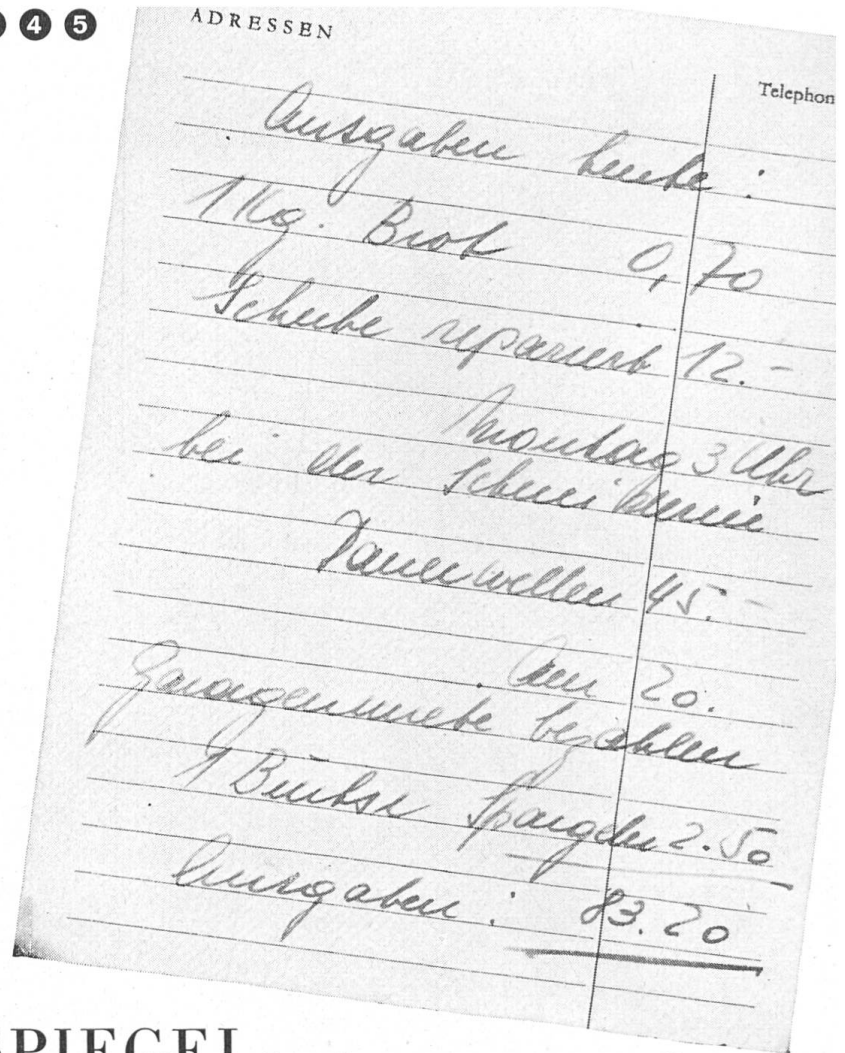 4 5
ADRESSEN
Telephon
Ausgaben heute:
1 Kg. Brot 0,70
Scheibe repariert 12.-
Montag 3 Uhr
bei der Schneiderin
Dauerwellen 45.-
Am 20.
Garagenmiete bezahlen
1 Büchse Spargeln 2.50
Ausgaben: 83.20
PIEGEL